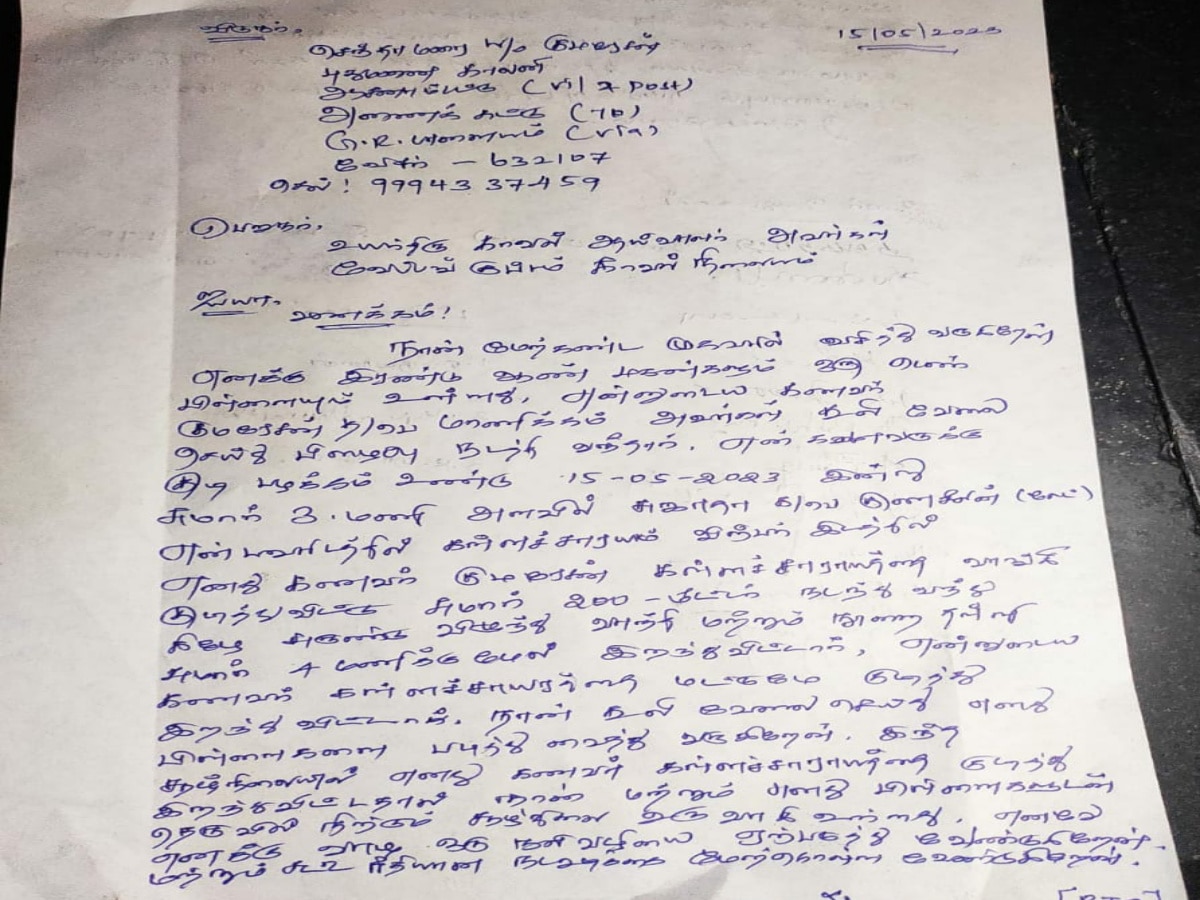 விடுநர், 15/05/2023
செந்தாமரை W/o குமரேசன்
புதுமனை காலனி
(Vil & Post)
அணைக்கட்டு (TK)
G.R. பாளையம் (Via)
வேலூர் - 632107
செல் : 9994337459
பெறுநர்,
உயர்திரு காவல் ஆய்வாளர் அவர்கள்
வேப்பங்குப்பம் காவல் நிலையம்
ஐயா,
வணக்கம்!
நான் மேற்கண்ட முகவரியில் வசித்து வருகிறேன்
எனக்கு இரண்டு ஆண் மகன்களும் ஒரு பெண்
பிள்ளையும் உள்ளது, என்னுடைய கணவர்
குமரேசன் த/பெ மாணிக்கம் அவர்கள் கூலி வேலை
செய்து பிழைப்பு நடத்தி வந்தார். என் கணவருக்கு
குடி பழக்கம் உண்டு 15-05-2023 இன்று
சுமார் 3.மணி அளவில் சுஜாதா க/பெ குணசீலன் (லேட்)
என்பவரிடத்தில் கள்ளச்சாரயம் விற்பன் இடத்தில்
எனது கணவர் குமரேசன் கள்ளச்சாராயத்தை வாங்கி
குடித்துவிட்டு சுமார் 200-மீட்டர் நடந்து வந்து
கீழே சுருண்டு விழுந்து வாந்தி மற்றும் நுரை தள்ளி
சுமார் 4 மணிக்கு மேல் இறந்துவிட்டார், என்னுடைய
கணவர் கள்ளச்சாயரத்தை மட்டுமே குடித்து
இறந்து விட்டார். நான் கூலி வேலை செய்து எனது
பிள்ளைகளை படித்து வைத்து வருகிறேன். இந்த
சூழ்நிலையில் எனது கணவர் கள்ளச்சாராயத்தை குடித்து
இறந்துவிட்டதால் நான் மற்றும் எனது பிள்ளைகளுடன்
தெருவில் நிற்கும் சூழ்நிலை உருவாகி உள்ளது, எனவே
எனக்கு வாழ ஒரு நல்வழியை ஏற்படுத்த வேண்டுகிறேன்.
மற்றும் சட்ட ரீதியான நடவடிக்கை மேற்கொள்ள வேண்டுகிறேன்.